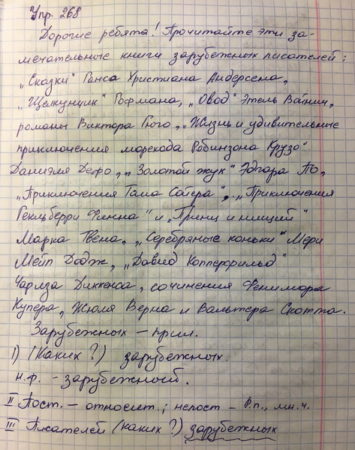 Упр. 268
Дорогие ребята! Прочитайте эти за-
мечательные книги зарубежных писателей:
„Сказки" Ганса Христиана Андерсена,
„Щелкунчик" Гофмана, „Овод" Этель Войнич,
романы Виктора Гюго, „Жизнь и удивительные
приключения морехода Робинзона Крузо"
Даниэля Дефо, „Золотой жук" Эдгара По,
„Приключения Тома Сойера", „Приключения
Гекльберри Финна" и „Принц и нищий"
Марка Твена, „Серебряные коньки" Мери
Мейп Додж, „Дэвид Копперфильд"
Чарлза Диккенса, сочинения Фенимора
Купера, Жюля Верна и Вальтера Скотта.
Зарубежных – прил.
I) (Каких?) зарубежных
н.ф. - зарубежный.
II Пост. – относит.; непост – Р.п., мн.ч.
III Писателей (каких?) зарубежных